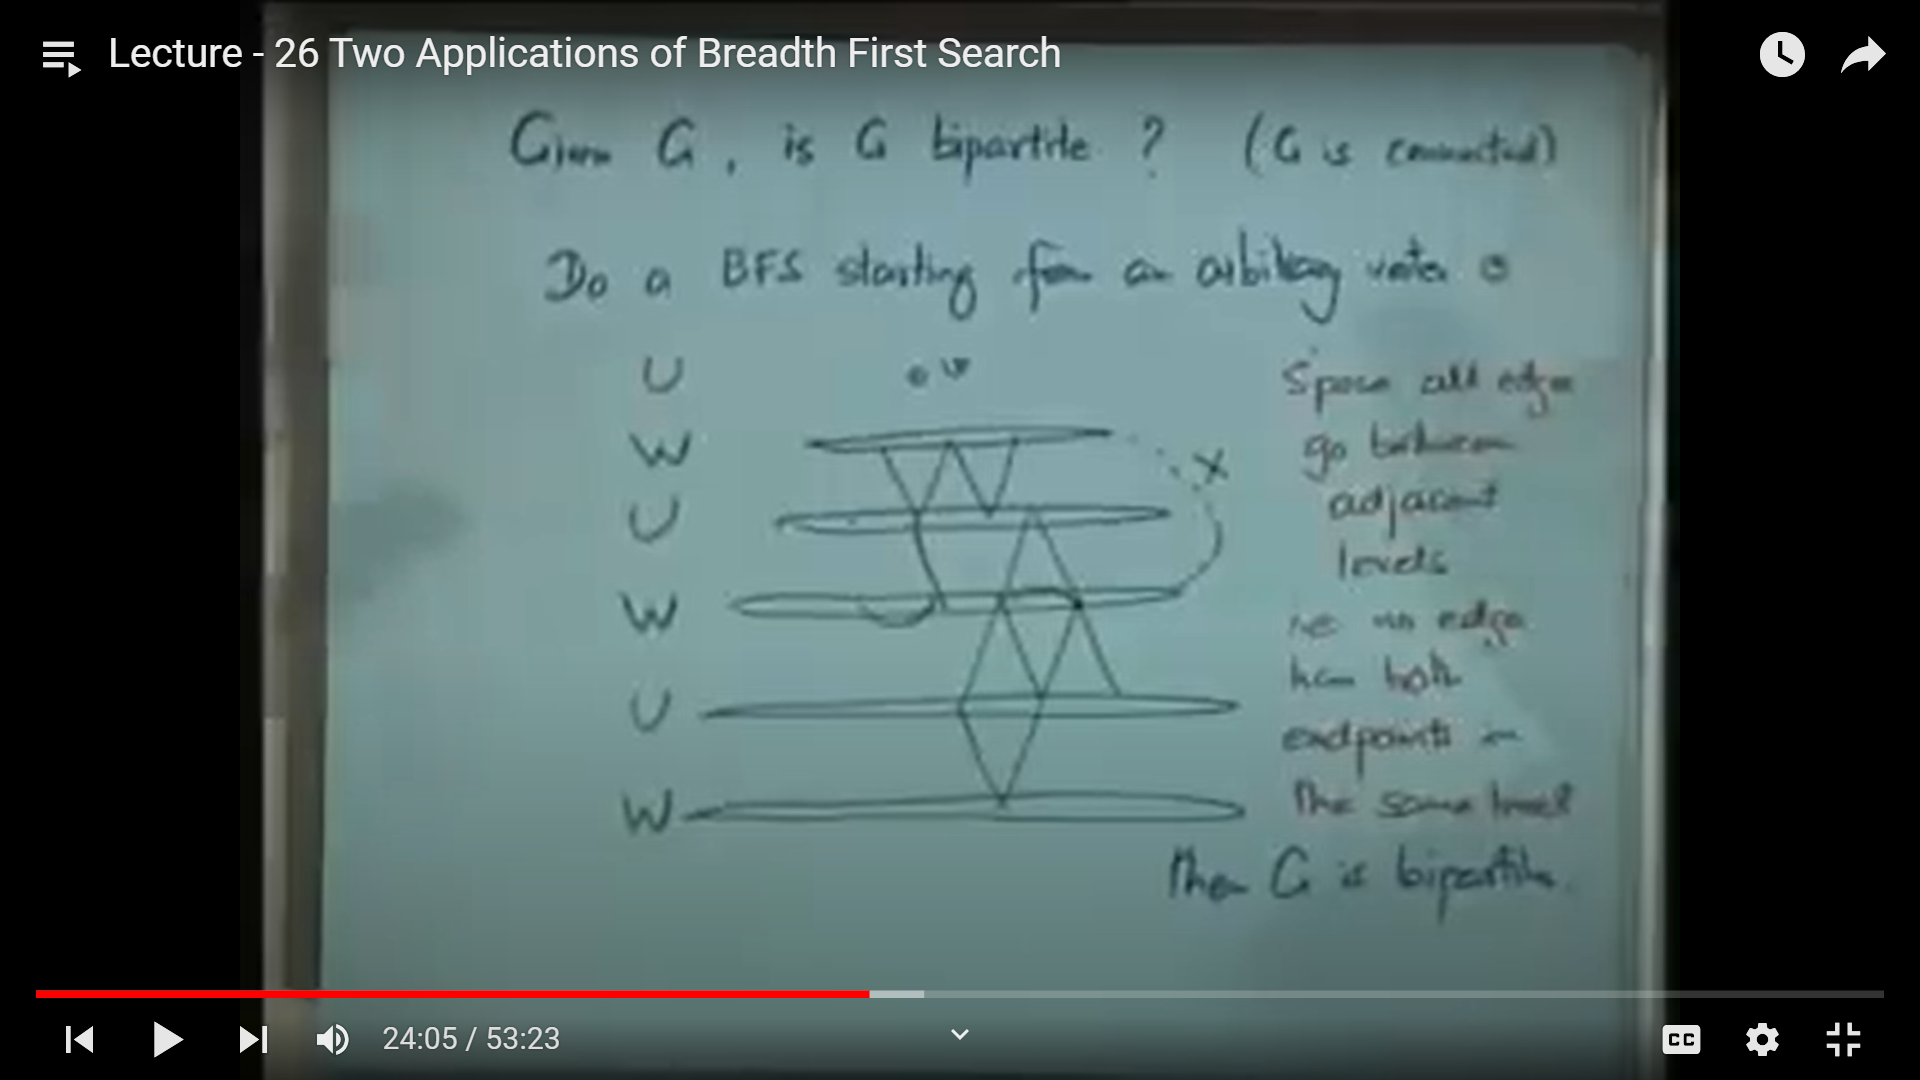 Lecture - 26 Two Applications of Breadth First Search
Given G, is G bipartite ? (G is connected)
Do a BFS starting from an arbitrary vertex v
U
v
W
X
U
W
U
W
Spose all edges
go between
adjacent
levels
i.e no edge
has both
endpoints in
the same level
then G is bipartite.
24:05 / 53:23
CC